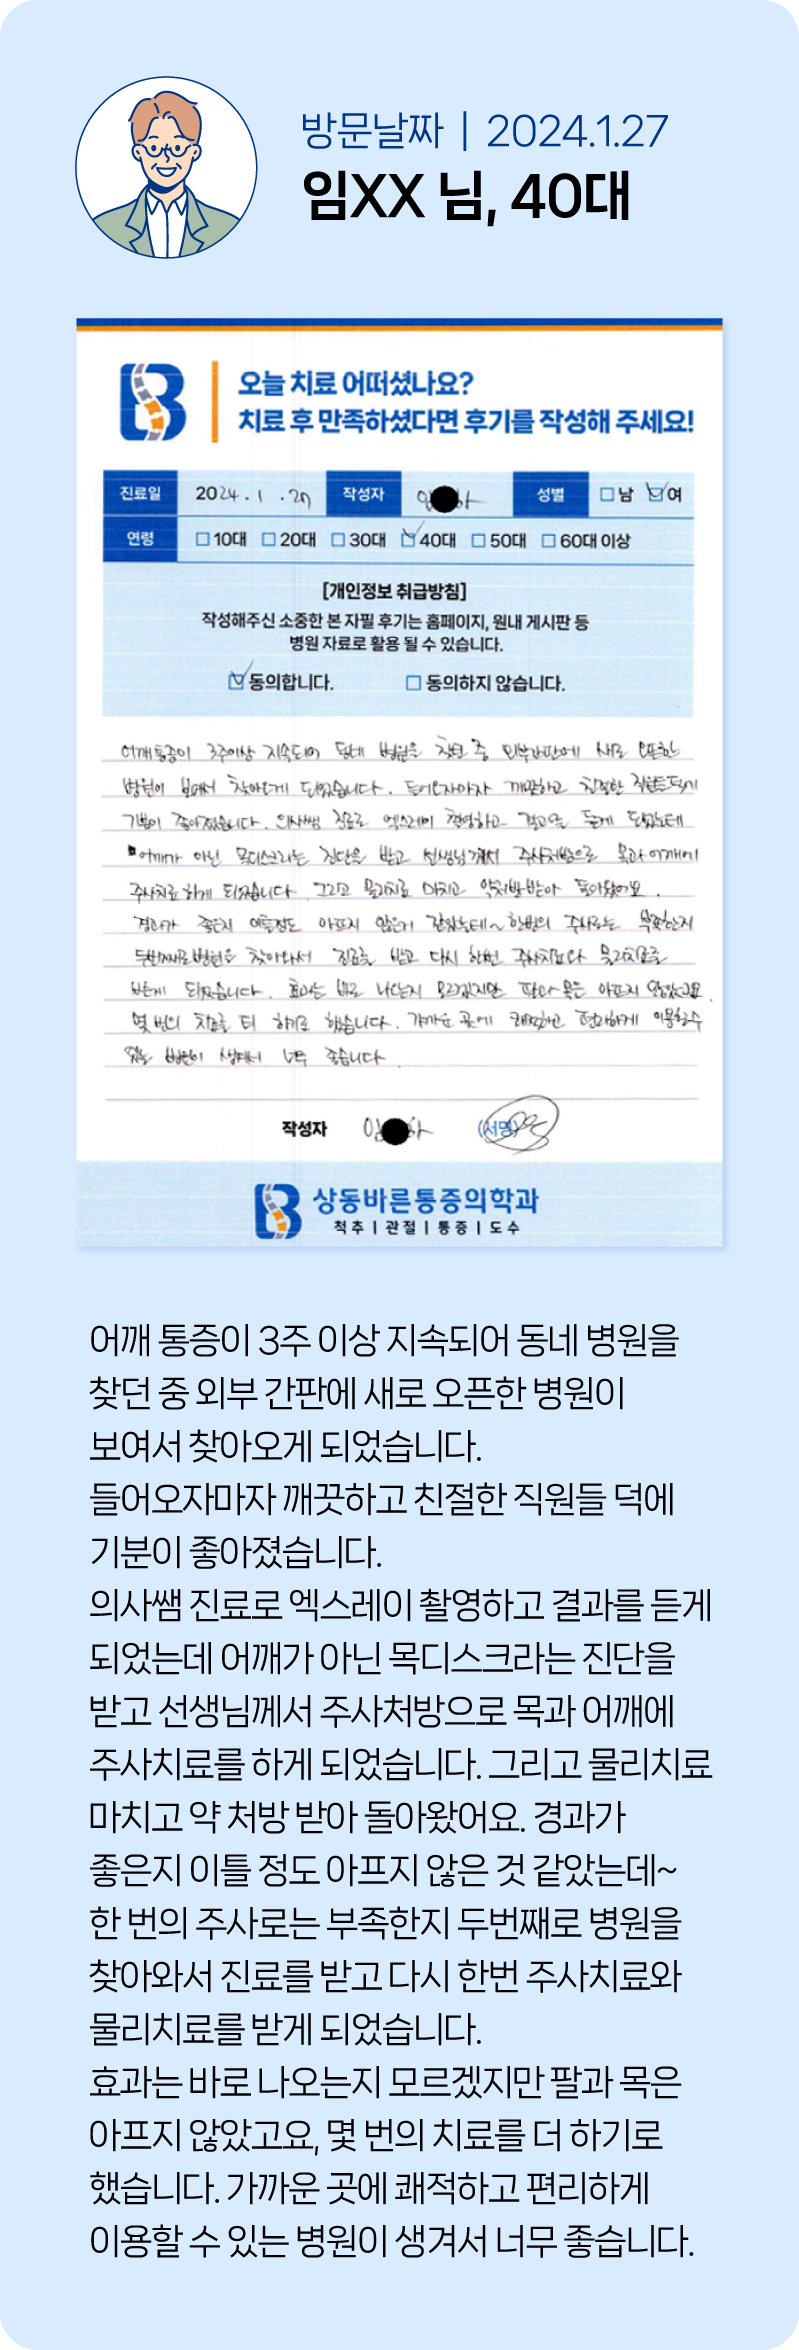 방문날짜 | 2024.1.27
임XX 님, 40대
오늘 치료 어떠셨나요?
치료 후 만족하셨다면 후기를 작성해 주세요!
진료일 2024.1.27 작성자 임 하 성별 □남 ☑여
연령 □10대 □20대 □30대 ☑40대 □50대 □60대 이상
[개인정보 취급방침]
작성해주신 소중한 본 자필 후기는 홈페이지, 원내 게시판 등
병원 자료로 활용 될 수 있습니다.
☑동의합니다. □동의하지 않습니다.
어깨통증이 3주이상 지속되어 동네 병원을 찾던 중 외부간판에 새로 오픈한
병원이 보여서 찾아오게 되었습니다. 들어오자마자 깨끗하고 친절한 직원들덕에
기분이 좋아졌습니다. 의사쌤 진료로 엑스레이 촬영하고 결과를 듣게 되었는데
어깨가 아닌 목디스크라는 진단을 받고 선생님께서 주사처방으로 목과 어깨에
주사치료 하게 되었습니다. 그리고 물리치료 마치고 약처방받아 돌아왔어요.
경과가 좋은지 이틀정도 아프지 않은거 같았는데~ 한번의 주사로는 부족한지
두번째로 병원을 찾아와서 진료를 받고 다시 한번 주사치료와 물리치료를
받게 되었습니다. 효과는 바로 나오는지 모르겠지만 팔과 목은 아프지 않았고요.
몇 번의 치료를 더 하기로 했습니다. 가까운 곳에 쾌적하고 편리하게 이용할수
있는 병원이 생겨서 너무 좋습니다.
작성자 임 하 (서명)
상동바른통증의학과
척추 | 관절 | 통증 | 도수
어깨 통증이 3주 이상 지속되어 동네 병원을
찾던 중 외부 간판에 새로 오픈한 병원이
보여서 찾아오게 되었습니다.
들어오자마자 깨끗하고 친절한 직원들 덕에
기분이 좋아졌습니다.
의사쌤 진료로 엑스레이 촬영하고 결과를 듣게
되었는데 어깨가 아닌 목디스크라는 진단을
받고 선생님께서 주사처방으로 목과 어깨에
주사치료를 하게 되었습니다. 그리고 물리치료
마치고 약 처방 받아 돌아왔어요. 경과가
좋은지 이틀 정도 아프지 않은 것 같았는데~
한 번의 주사로는 부족한지 두번째로 병원을
찾아와서 진료를 받고 다시 한번 주사치료와
물리치료를 받게 되었습니다.
효과는 바로 나오는지 모르겠지만 팔과 목은
아프지 않았고요, 몇 번의 치료를 더 하기로
했습니다. 가까운 곳에 쾌적하고 편리하게
이용할 수 있는 병원이 생겨서 너무 좋습니다.